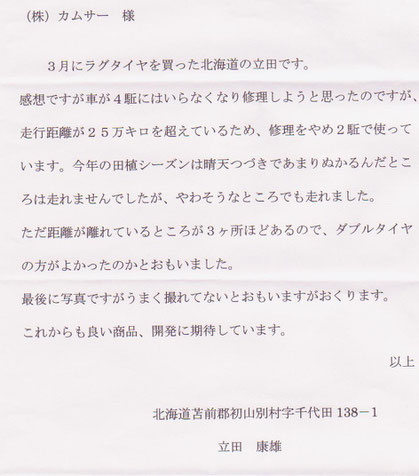 （株）カムサー　様
３月にラグタイヤを買った北海道の立田です。
感想ですが車が４駆にはいらなくなり修理しようと思ったのですが、
走行距離が２５万キロを超えているため、修理をやめ２駆で使って
います。今年の田植シーズンは晴天つづきであまりぬかるんだとこ
ろは走れませんでしたが、やわそうなところでも走れました。
ただ距離が離れているところが３ヶ所ほどあるので、ダブルタイヤ
の方がよかったのかとおもいました。
最後に写真ですがうまく撮れてないとおもいますがおくります。
これからも良い商品、開発に期待しています。
以上
北海道苫前郡初山別村字千代田 138－1
立田　康雄